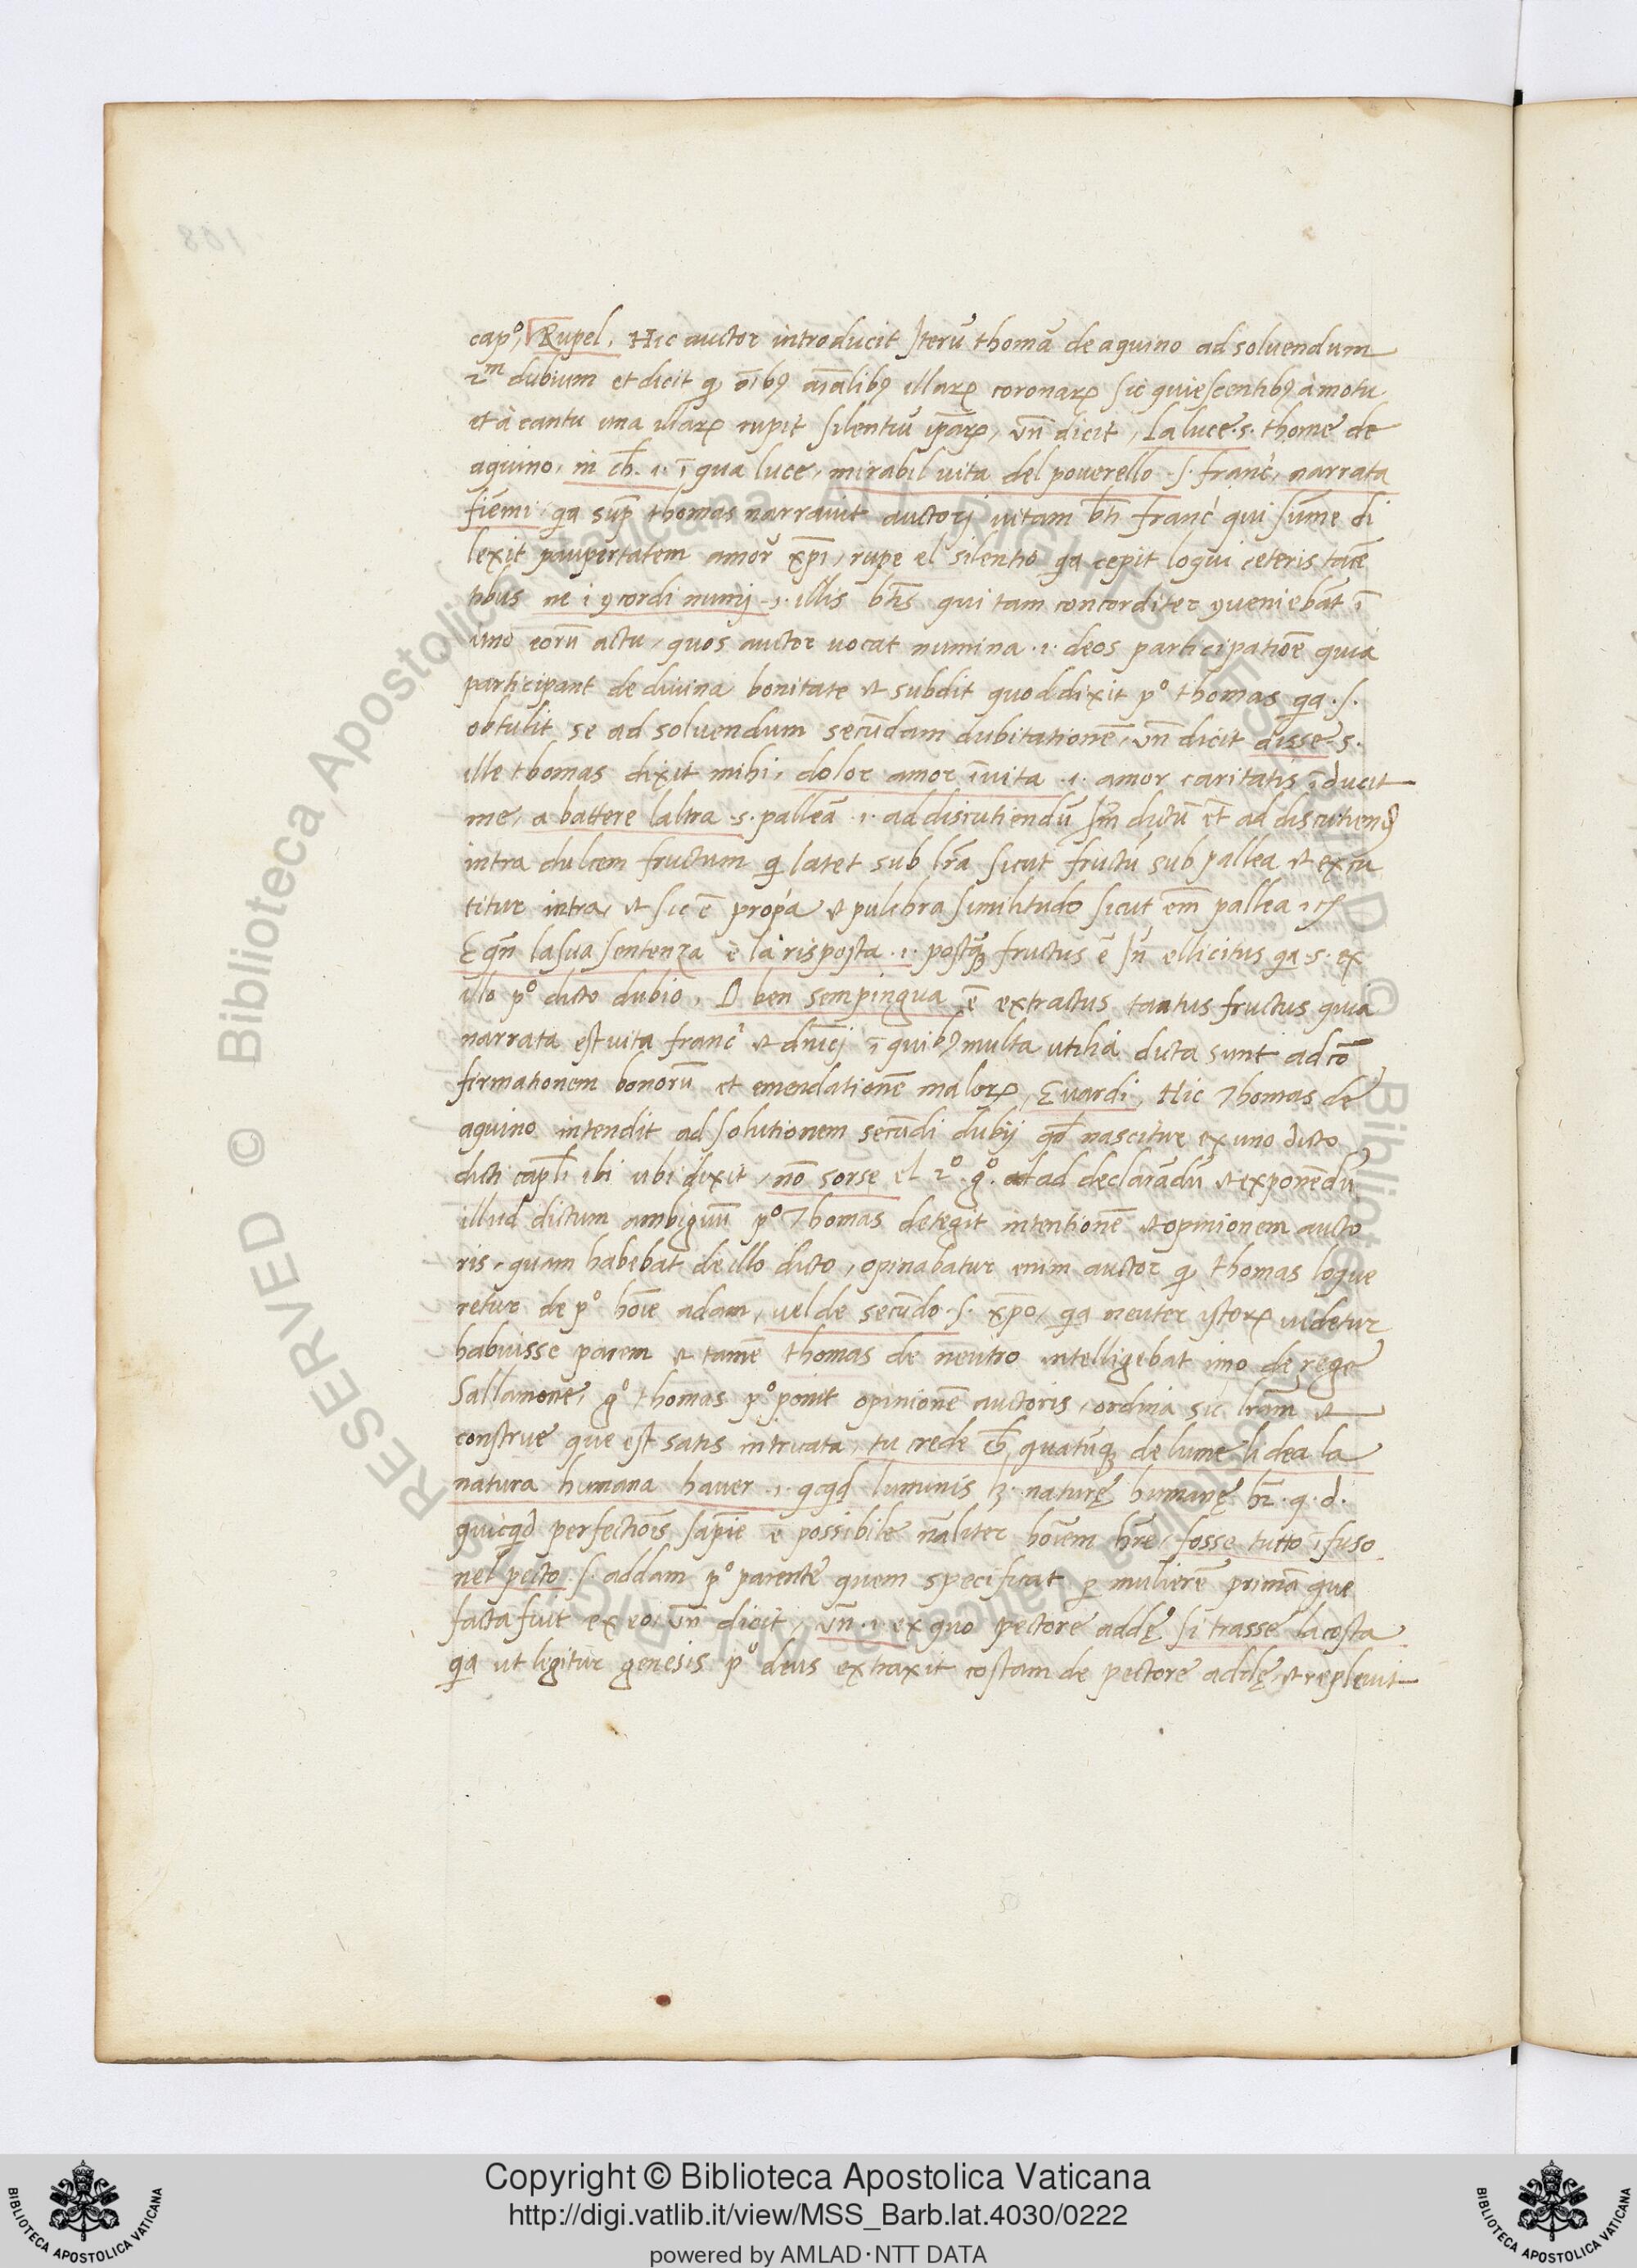 capº, Rupel. Hic auctor introducit Iterū thomā de aquino ad soluendum
2m dubium et dicit ꝙ oībꝰ aīalibꝰ illaꝝ coronaꝝ sic quiescentibꝰ à motu
et à cantu una illaꝝ rupit silentiū ip̄aꝝ, vn̄ dicit, La luce .s. thome de
aquino, in cħ. i. ī qua luce, mirabil vita del pouerello .s. franc̓, narrata
fiemi q̄a sup̄ thomas narrauit auctorj uitam bt̄i franc̓ qui sūme di
lexit paupertatem amor̄ xp̄i, rupe el silentio q̄a cepit loqui ceteris tacē
tibus ne i ꝯcordi numj .i. illis bt̄is qui tam concorditer ꝯueniebāt ī
uno eorū actu, quos auctor uocat numina .i. deos participatiōe quia
participant de diuina bonitate & subdit quod dixit pº thomas q̄a .s.
obtulit se ad soluendum secūdam dubitationē, vn̄ dicit disse .s.
ille thomas dixit mihi, dolor amor īuita .i. amor caritatis īducit
me, a battere laltra .s. palleā .i. ad discutiendū
intra dulcem fructum ꝙ latet sub lr̄a sicut fructū sub pallea & excu
titur intra, & sic ē prop̓a & pulchra similitudo sicut em̄ pallea
E qn̄ la sua sentenza è la risposta .i. postq̄ꝫ fructus ē In̄ ellicitus q̄a .s. ex
illo pº dicto dubio, D ben sempingua ē extractus tantus fructus quia
narrata est vita franc̓ & dn̄icj ī quibꝰ multa utilia dicta sunt ad cō
firmationem bonorū et emendationē maloꝝ, E uardi, Hic Thomas de
aquino intendit ad solutionem secūdi dubij qd̄ nascitur ex uno dicto
dicti capl̄i ibi ubi dixit, nō sorse el 2º. gº. ad declarādū & exponēdū
illud dictum ambiguū pº Thomas detegit intentionē & opinionem aucto
ris, quam habebat de illo dicto, opinabatur enim auctor ꝙ thomas loque
retur de pº hoīe adam, uel de secūdo .s. xp̄o, q̄a neuter istoꝝ uidetur
habuisse parem & tamē thomas de neutro intelligebat imo de rege
Sallamone, gº thomas pº ponit opinionē auctoris, ordina sic lr̄am &
construe que est satis intricata, tu crede cħ, quatūqꝫ de lume li dea la
natura humana hauer .i. qcqd̄ luminis lꝫ naturę humanę hr̄e .q.d.
quicqd̄ perfectiōis sapīe ē possibile nāliter hoīem hr̄e, fosse tutto īfuso
nel pecto .s. addam pº parente quem specificat ꝑ mulierē primā que
facta fuit ex eo, vn̄ dicit, vn̄ .i. ex quo pectore addę si trasse la costa
q̄a ut legitur genesis pº deus extraxit costam de pectore addę & repleuit
Copyright © Biblioteca Apostolica Vaticana
http://digi.vatlib.it/view/MSS_Barb.lat.4030/0222
powered by AMLAD·NTT DATA